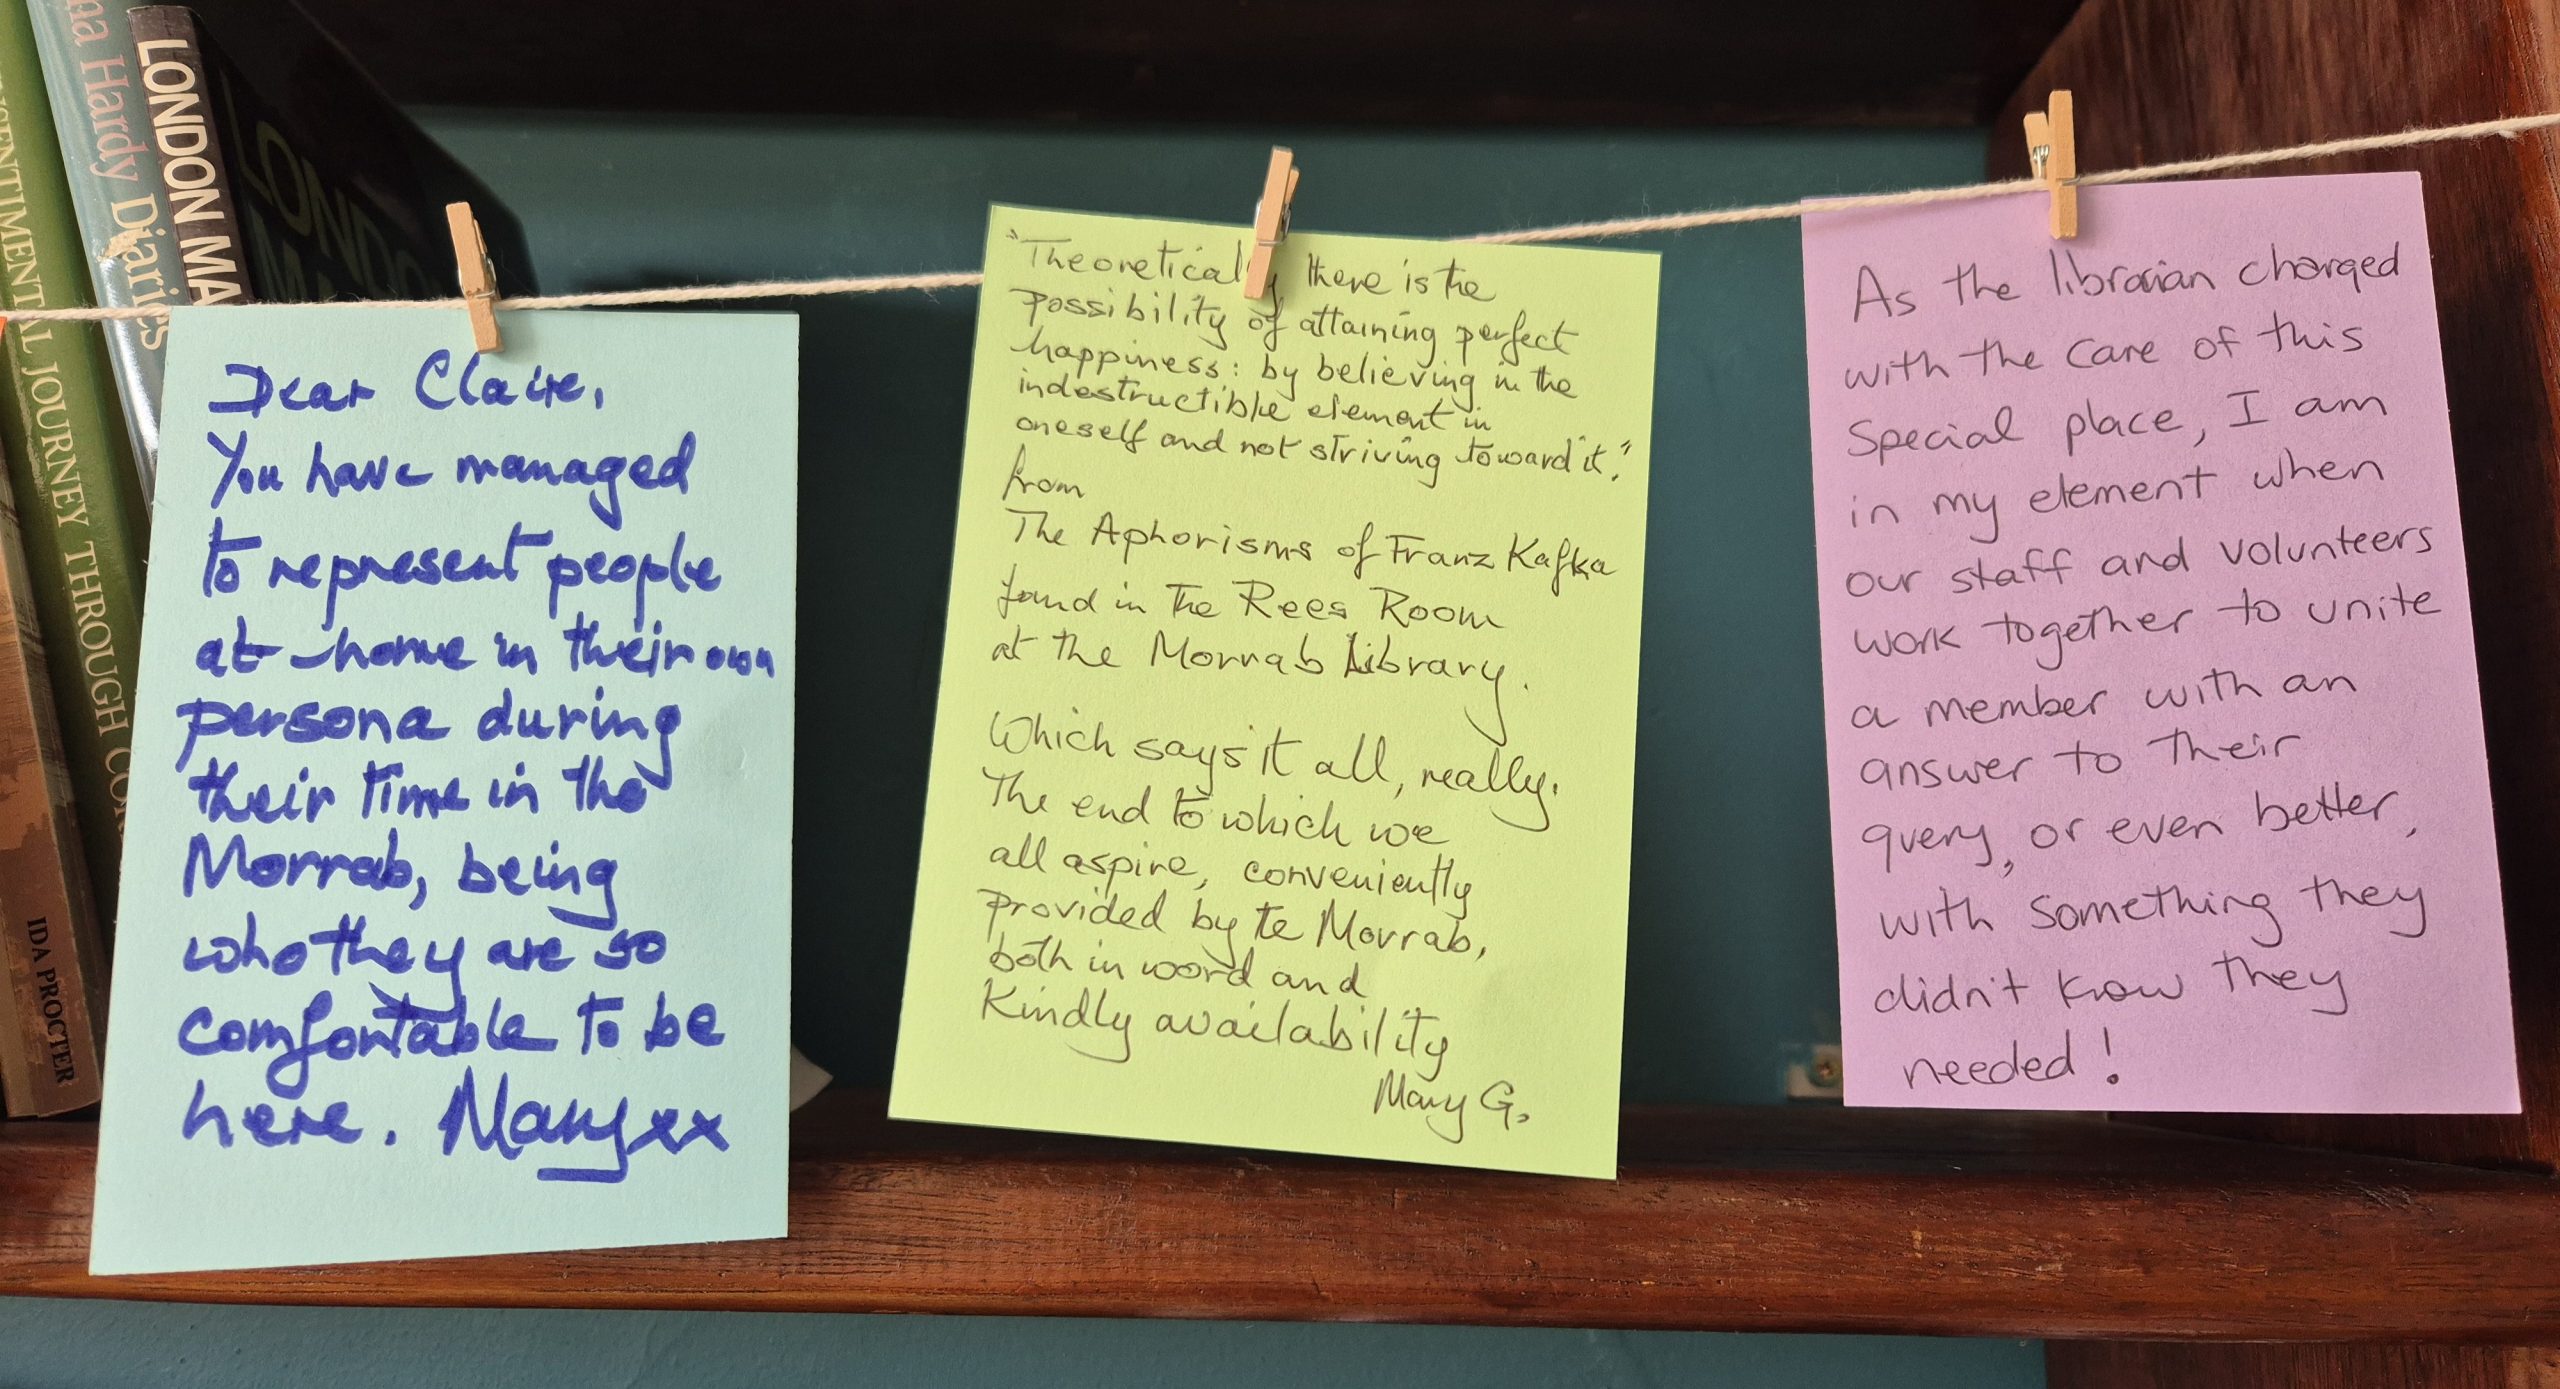 SENTIMENTAL JOURNEY THROUGH
Hardy Diaries
LONDON
LONDON
IDA PROCTER
Dear Claire,
You have managed
to represent people
at home in their own
persona during
their time in the
Morrab, being
who they are so
comfortable to be
here. Mary xx
"Theoretically there is the
possibility of attaining perfect
happiness: by believing in the
indestructible element in
oneself and not striving toward it."
from
The Aphorisms of Franz Kafka
found in the Rees Room
at the Morrab Library.
Which says it all, really.
The end to which we
all aspire, conveniently
provided by te Morrab,
both in word and
Kindly availability
Mary G.
As the librarian charged
with the care of this
special place, I am
in my element when
our staff and volunteers
work together to unite
a member with an
answer to their
query, or even better,
with something they
didn't know they
needed!